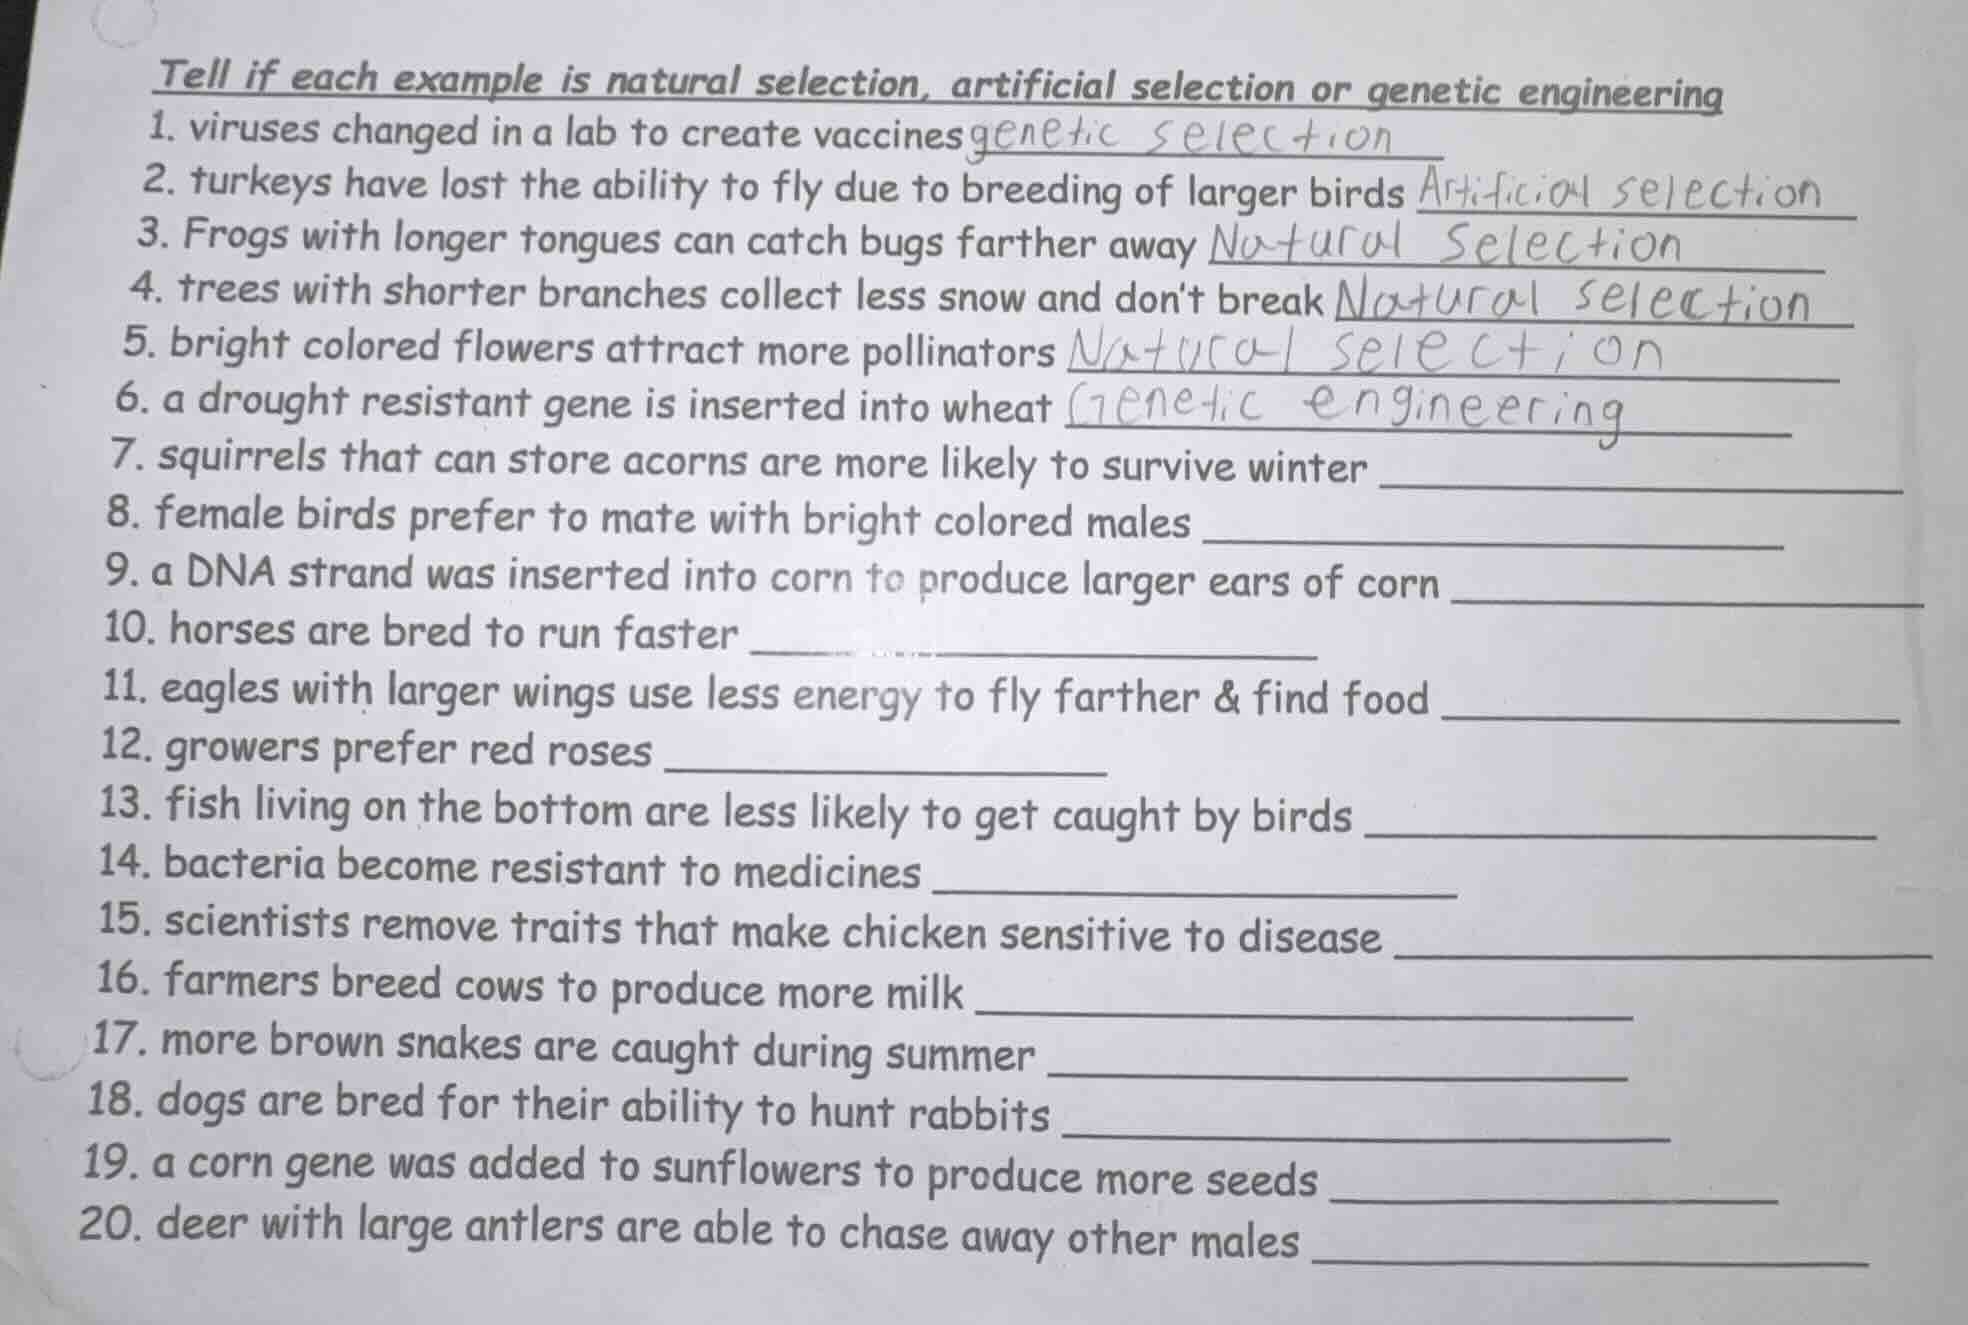 Tell if each example is natural selection, artificial selection or genetic engineering
1. viruses changed in a lab to create vaccines genetic selection
2. turkeys have lost the ability to fly due to breeding of larger birds Artificial selection
3. Frogs with longer tongues can catch bugs farther away Natural Selection
4. trees with shorter branches collect less snow and don't break Natural selection
5. bright colored flowers attract more pollinators Natural selection
6. a drought resistant gene is inserted into wheat Genetic engineering
7. squirrels that can store acorns are more likely to survive winter
8. female birds prefer to mate with bright colored males
9. a DNA strand was inserted into corn to produce larger ears of corn
10. horses are bred to run faster
11. eagles with larger wings use less energy to fly farther & find food
12. growers prefer red roses
13. fish living on the bottom are less likely to get caught by birds
14. bacteria become resistant to medicines
15. scientists remove traits that make chicken sensitive to disease
16. farmers breed cows to produce more milk
17. more brown snakes are caught during summer
18. dogs are bred for their ability to hunt rabbits
19. a corn gene was added to sunflowers to produce more seeds
20. deer with large antlers are able to chase away other males